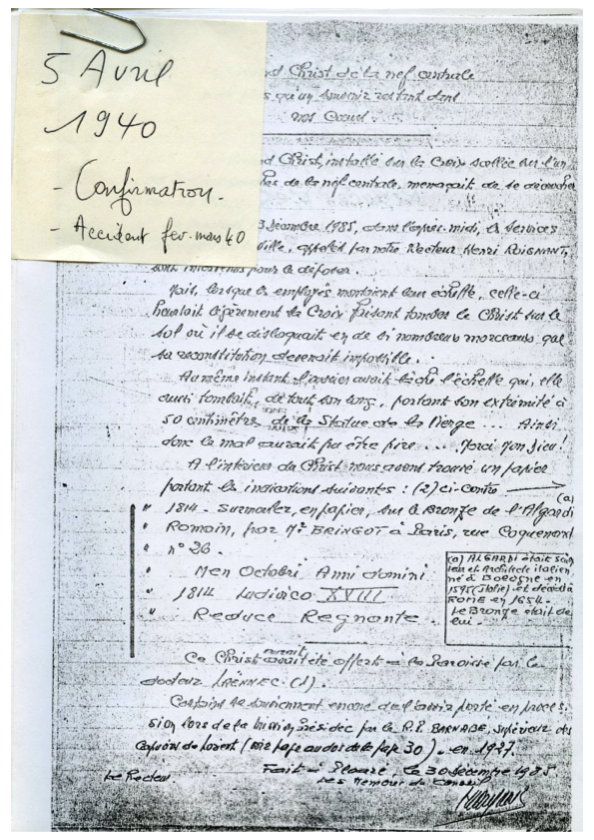 5 Avril
1940
- Confirmation.
- Accident fev-mars 40
Christ de la nef centrale
qu'un souvenir restant dans
nos Coeurs.
Christ, installé sur la Croix scellée sur l'un
de la nef centrale, menaçait de se décrocher
1985, dans l'après-midi, les Services
ville, appelés par notre Recteur Henri ROIGNANT,
sont intervenus pour le déposer.
Mais, lorsque les employés montaient leur échelle, celle-ci
heurtait légèrement la Croix faisant tomber le Christ sur le
sol où il se disloquait en de si nombreux morceaux, que
sa reconstitution devenait impossible...
Au même instant l'ouvrier avait lâché l'échelle qui, elle
aussi tombait, de tout son long, portant son extrémité à
50 centimètres de la Statue de la Vierge... Ainsi
donc le mal aurait pu être pire... Merci Mon Dieu!
A l'intérieur du Christ nous avons trouvé un papier
portant les indications suivantes : (2) ci-contre
(a)
" 1814. Surmoulez, en papier, sur le Bronze de l'Algardi
" Romain, par Mr BRINGOT à Paris, rue Coquenard
" n° 26.
" Men Octobri Anni domini
" 1814 Ludivico XVIII
" Reduce Regnante.
(a) ALGARDI était Sculp
teur et Architecte italien
né à BOLOGNE en
1595 (Italie) et décédé à
ROME en 1654.
Le Bronze était de
lui.
Ce Christ aurait été offert à la Paroisse par le
docteur LAËNNEC (1).
Certains se souviennent encore de l'avoir porté en proces
sion lors de la Mission présidée par le R.P. BARNABE, supérieur des
Capucins de Lorient (voir page au dos de la page 30). en 1927.
Fait à Ploaré, le 30 décembre 1985
Le Recteur
Les Membres du Conseil